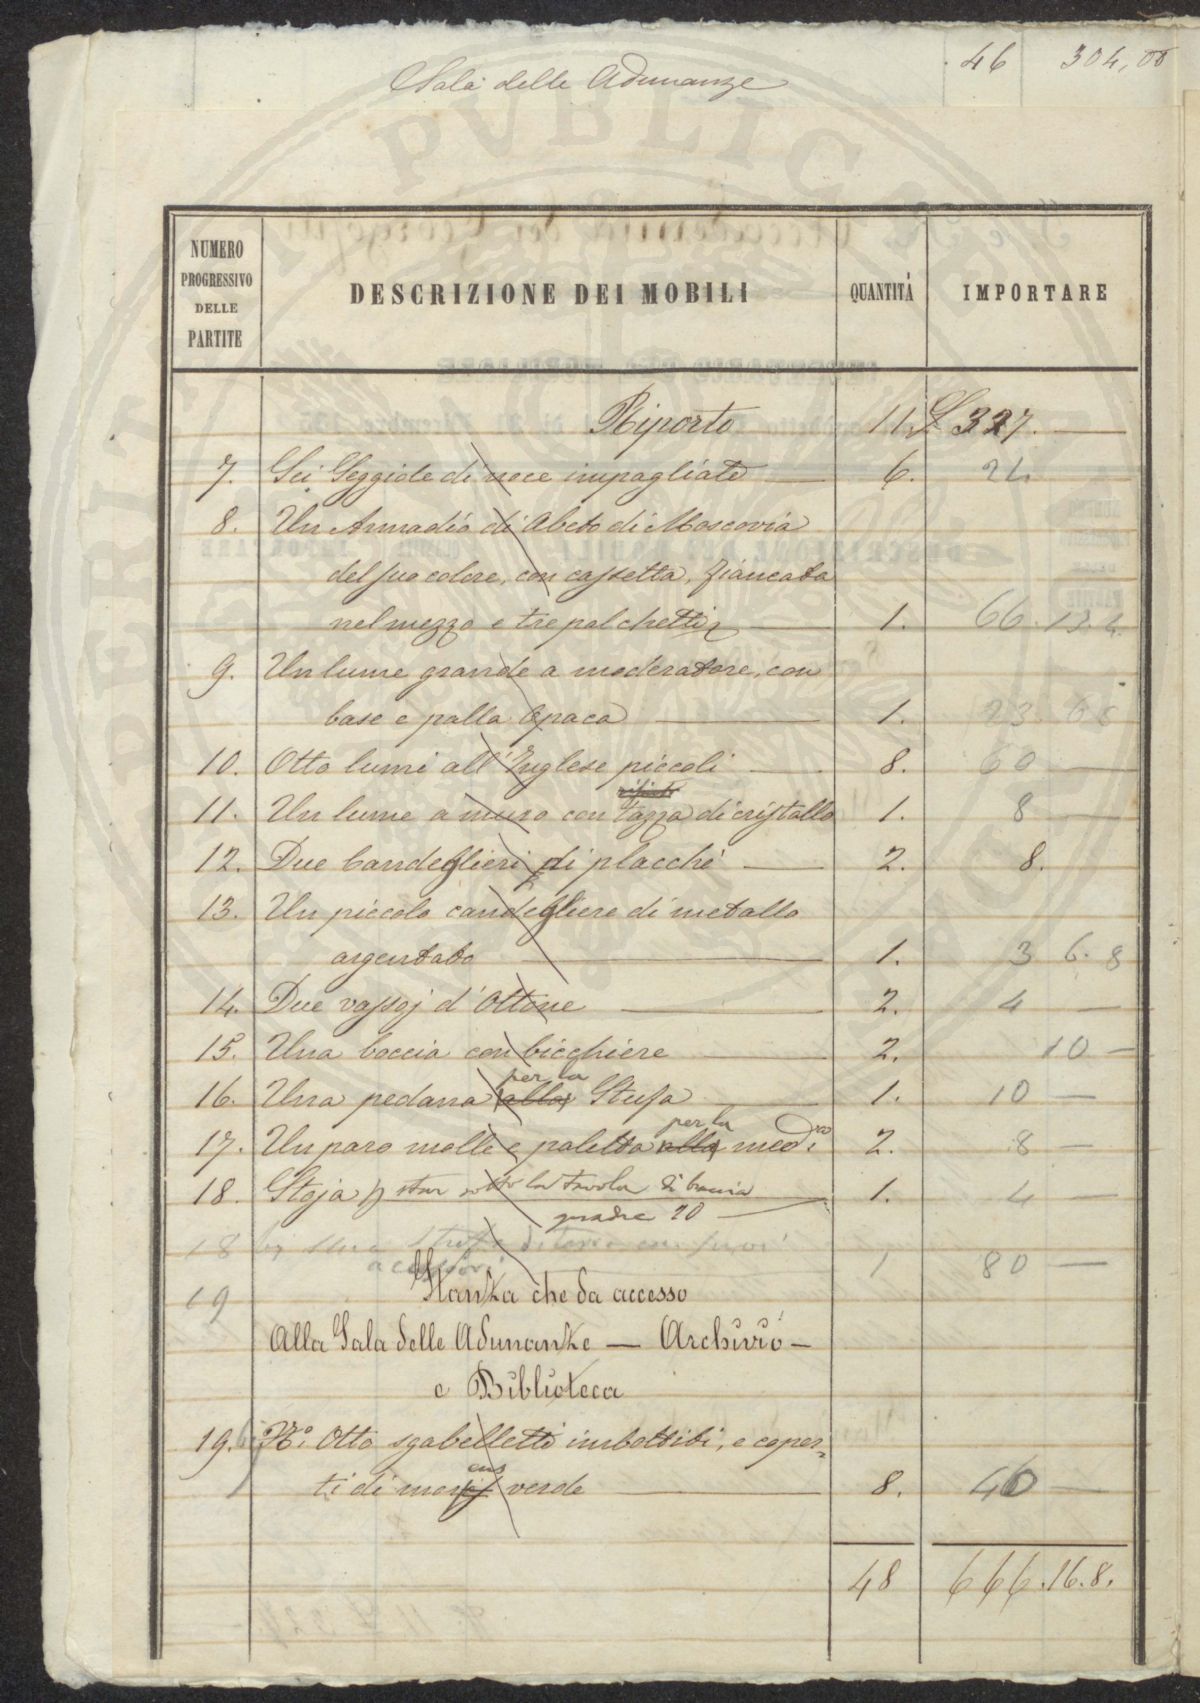 46 304,00
Sala delle Adunanze
NUMERO PROGRESSIVO DELLE PARTITE
DESCRIZIONE DEI MOBILI
QUANTITÁ
IMPORTARE
Riporto 11. £ 327. —
7. Sei Seggiole di noce impagliate — 6. 24. —
8. Un Armadio di Abeto di Moscovia
del suo colore, con cassetta, fiancata
nel mezzo e tre palchetti — 1. 66. 13. 4.
9. Un lume grande a moderatore, con
base e palla opaca — 1. 23. 6 8
10. Otto lumi all'Inglese piccoli — 8. 60 —
11. Un lume a muro con tazza di cristallo 1. 8 —
12. Due Candeglieri di placché — 2. 8.
13. Un piccolo candegliere di metallo
argentato — 1. 3 6. 8
14. Due vassoj d'Ottone — 2. 4 —
15. Una boccia con bicchiere — 2. 10 —
per la
16. Una pedana alla Stufa — 1. 10 —
per la
17. Un paro molle e paletta alla med.ma 2. 8 —
18. Stoja p star sotto la tavola di braccia 1. 4 —
quadre 20 —
18 bis Una Stufa di terra con suoi
accessori 1 80 —
19
Stanza che da accesso
Alla Sala delle Adunanze — Archivio —
e Biblioteca
19. N.º Otto sgabelletti imbottiti, e coper-
ti di verde — 8. 40 —
48 666.16.8.